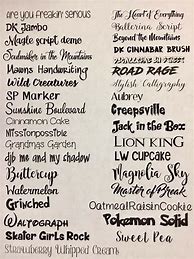 are you freakin serious
DK Jambo
Magic script demo
Soulmaker in the Mountains
Mawns Handwriting
Wild Creatures
SP Marker
Sunshine Boulevard
Cinnamon Cake
Missionpossible
Grandmas Garden
djb me and my shadow
Buttercup
Watermelon
Grinched
Waltograph
Skater Girls Rock
Strawberry Whipped Cream
The Heart of Everything
Beyond the Mountains
DK CINNABAR BRUSH
ROAD RAGE
Stylish Calligraphy
Aubrey
Creepsville
Jack in the Box
LION KING
LW CUPCAKE
Magnolia Sky
Master of Break
OatmealRaisinCookie
Pokemon Solid
Sweet Pea